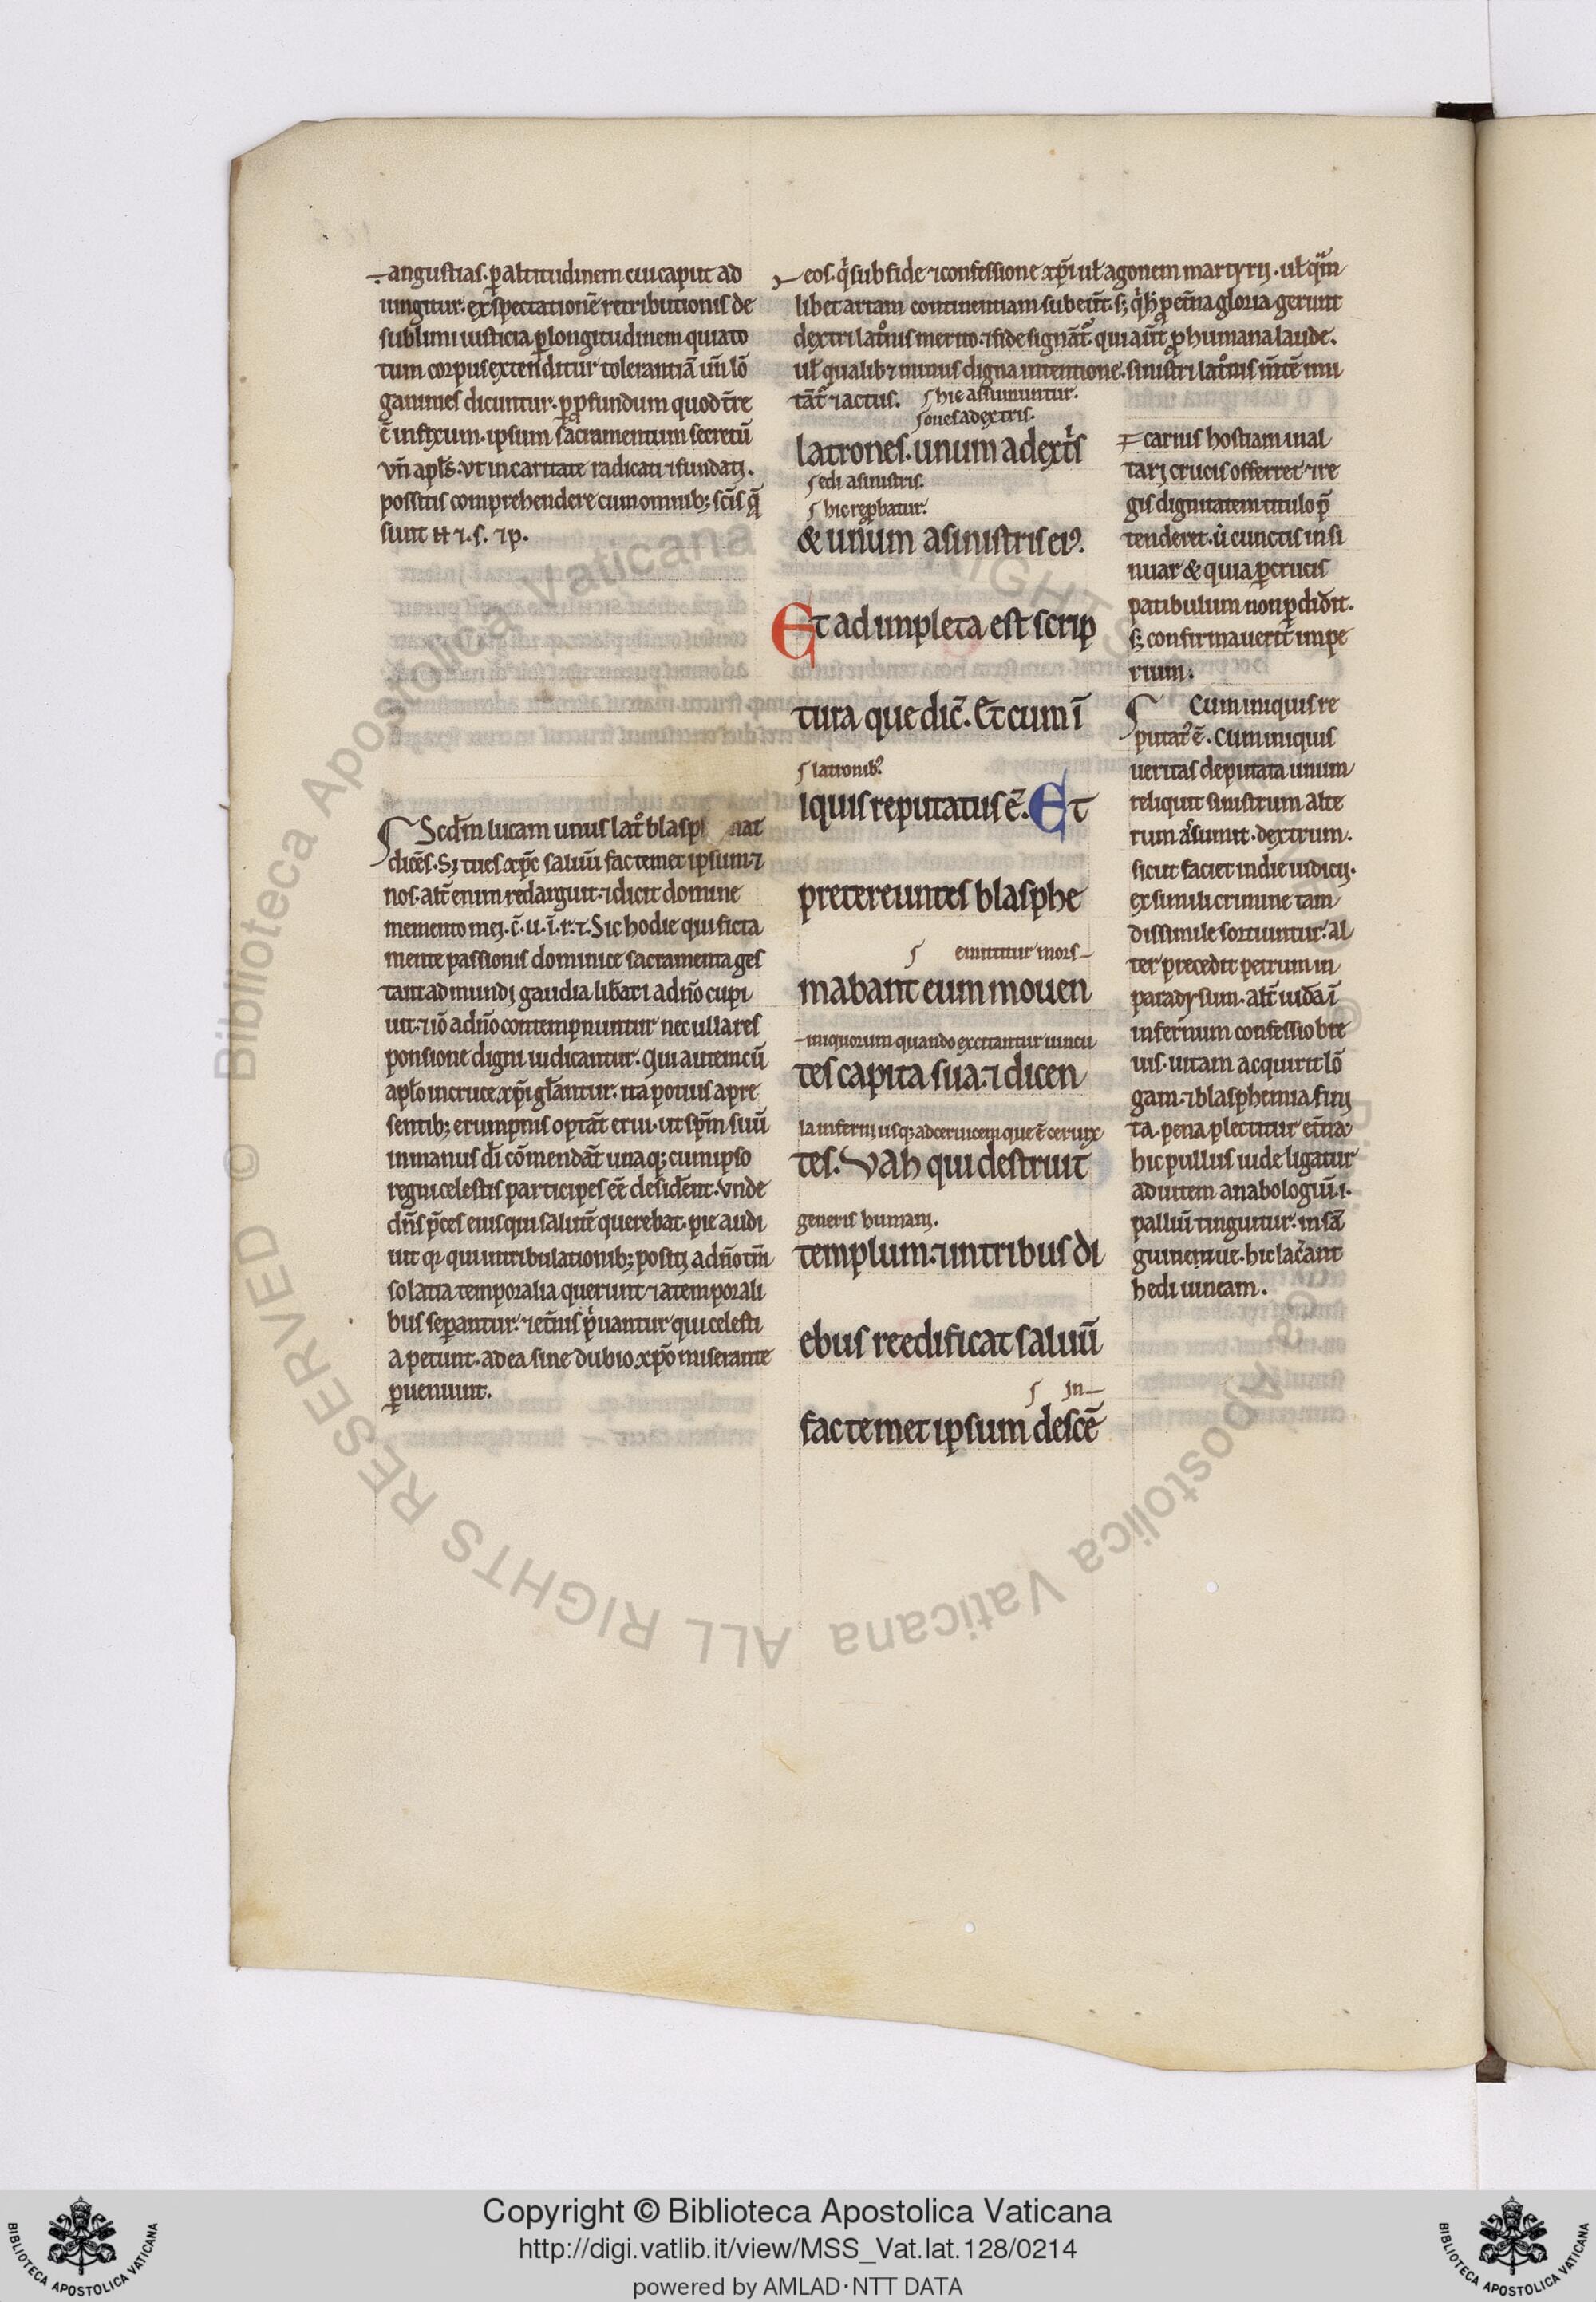 angustias. p̱ altitudinem cui caput ad
iungitur. exspectationē retributionis de
sublimi iusticia ꝑ longitudinem qua to
tum corpus extenditur tolerantiā uñ lō
ganimes dicuntur. ꝑ ꝓfundum quod t̄re
ē infixum. ipsum sacramentum secretū
vñ apl̄s. vt in caritate radicati ⁊ fundati.
possitis comprehendere cum omnib; sc̄is q̄
sunt ⁊. s. ⁊ p.
Sed in lucam unus lat̊ blasp nat
dicēs. Si tu es xp̄c saluū fac temet ipsum ⁊
nos. alt̄ enim redarguit. ⁊ dicit domine
memento mei. c̄. u. ī. r. t. Sic hodie qui ficta
mente passionis dominice sacramenta ges
tant ad mundi gaudia lib̄ari a dn̄o cupi
unt. ⁊ iō a dn̄o contempnuntur nec ulla res
ponsione digni iudicantur. Qui autem cū
apl̄o in cruce xp̄i gl̄antur. ita potius a pre
sentib; erumpnis optāt erui. ut sp̄m suū
in manus dī cōmendāt una q; cum ipso
regni celestis participes eē desiderēt. vnde
dn̄s p̄ces eius qui salutē querebat. pie audi
uit qr qui in tribulationib; positi a dn̄o tm̄
solatia temporalia querunt ⁊ a temporali
bus sep̱antur. ⁊ et̄nis p̓uantur qui celesti
a petunt. ad ea sine dubio xp̄o miserante
ꝑueniunt.
eos. q̓ sub fide ⁊ confessione xp̄i ul̄ agonem martyrii. ul̄ q̄m
libet artam continentiam subeūt. s; q̓ h̄ ꝑ et̄na gloria gerunt
dextri lat̊nis merito. ⁊ fide signāt͛. qui aūt ꝓ humana laude.
ul̄ qualib; minus digna intentione. sinistri lat̊nis m̄tē imi
tāt͛ ⁊ actus.
hic assumuntur.
oues a dextris.
latrones. unum a dext̓s
edi a sinistris.
hic rep̱batur.
& unum a sinistris eiꝰ.
Et adimpleta est scrip
tura que dic̄. Et cum ī
latronibꝰ
iquis reputatus ē. Et
pretereuntes blasphe
emittitur mors
mabant eum mouen
iniquorum quando excitantur uincu
tes capita sua. ⁊ dicen
la inferni usq; ad ceruicem que ē ceruix
tes. Vah qui destruit
generis humani.
templum. ⁊ in tribus di
ebus reedificat saluū
In
fac temet ipsum descē
carnis hostiam in al
tari crucis offerret ⁊ re
gis dignitatem titulo p̄
tenderet. ut cunctis insi
nuar & quia ꝑ crucis
patibulum non ꝑdidit.
s; confirmauerit impe
rium.
Cum iniquis re
putatꝰ ē. Cum iniquis
ueritas deputata unum
reliquit sinistrum alte
rum assumit. dextrum.
sicut faciet in die iudicii.
ex simili crimine tam
dissimile sortiuntur. al
ter precedit petrum in
paradysum. alt̄ iudā ī
infernum confessio bre
uis. uitam acquirit lō
gam. ⁊ blasphemia fini
ta. pena plectitur et̄na.
hic pullus iude ligatur
ad uitem anabologiū. i.
palliū tinguitur. in sā
guinem ue. hic lac̄ant
hedi uineam.
© Biblioteca Apostolica Vaticana ALL RIGHTS RESERVED
Copyright © Biblioteca Apostolica Vaticana
http://digi.vatlib.it/view/MSS_Vat.lat.128/0214
powered by AMLAD·NTT DATA
BIBLIOTECA APOSTOLICA VATICANA
BIBLIOTECA APOSTOLICA VATICANA